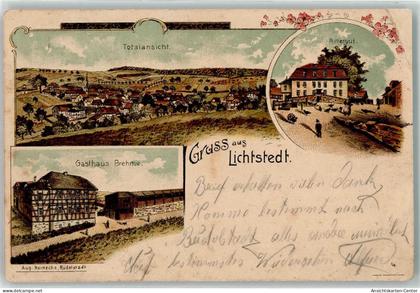 Totalansicht.
Rittergut.
Gruss aus
Lichtstedt.
Gasthaus Brehme.
Brief erhalten vielen Dank
Komme bestimmt nach
Rudolstadt alles andere mündlich
Auf Wiedersehn
Aug. Heinecke, Rudolstadt
Ansichtskarten-Center